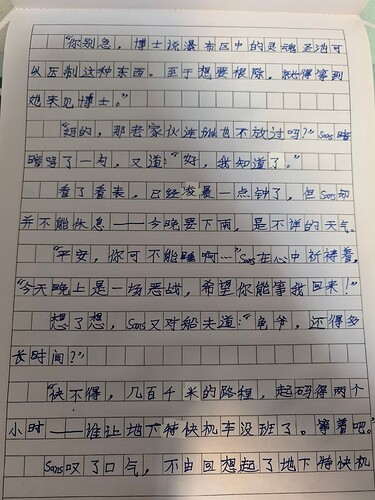 “你别急，博士说瀑布区中的灵魂圣池可
以压制这种东西。至于想要根除，就得等到
她来见博士。”
“妈的，那老家伙连她也不放过吗？”Sans暗
暗骂了一句，又道：“好，我知道了。”
看了看表，已经凌晨一点钟了，但Sans却
并不能休息——今晚要下雨，是不详的天气。
“平安，你可不能睡啊…”Sans在心中祈祷着，
“今天晚上是一场恶战，希望你能等我回来！”
想了想，Sans又对船夫道：“龟爷，还得多
长时间？”
“快不得，几百千米的路程，起码得两个
小时——谁让地下特快机车没班了。等着吧。”
Sans叹了口气，不由回想起了地下特快机